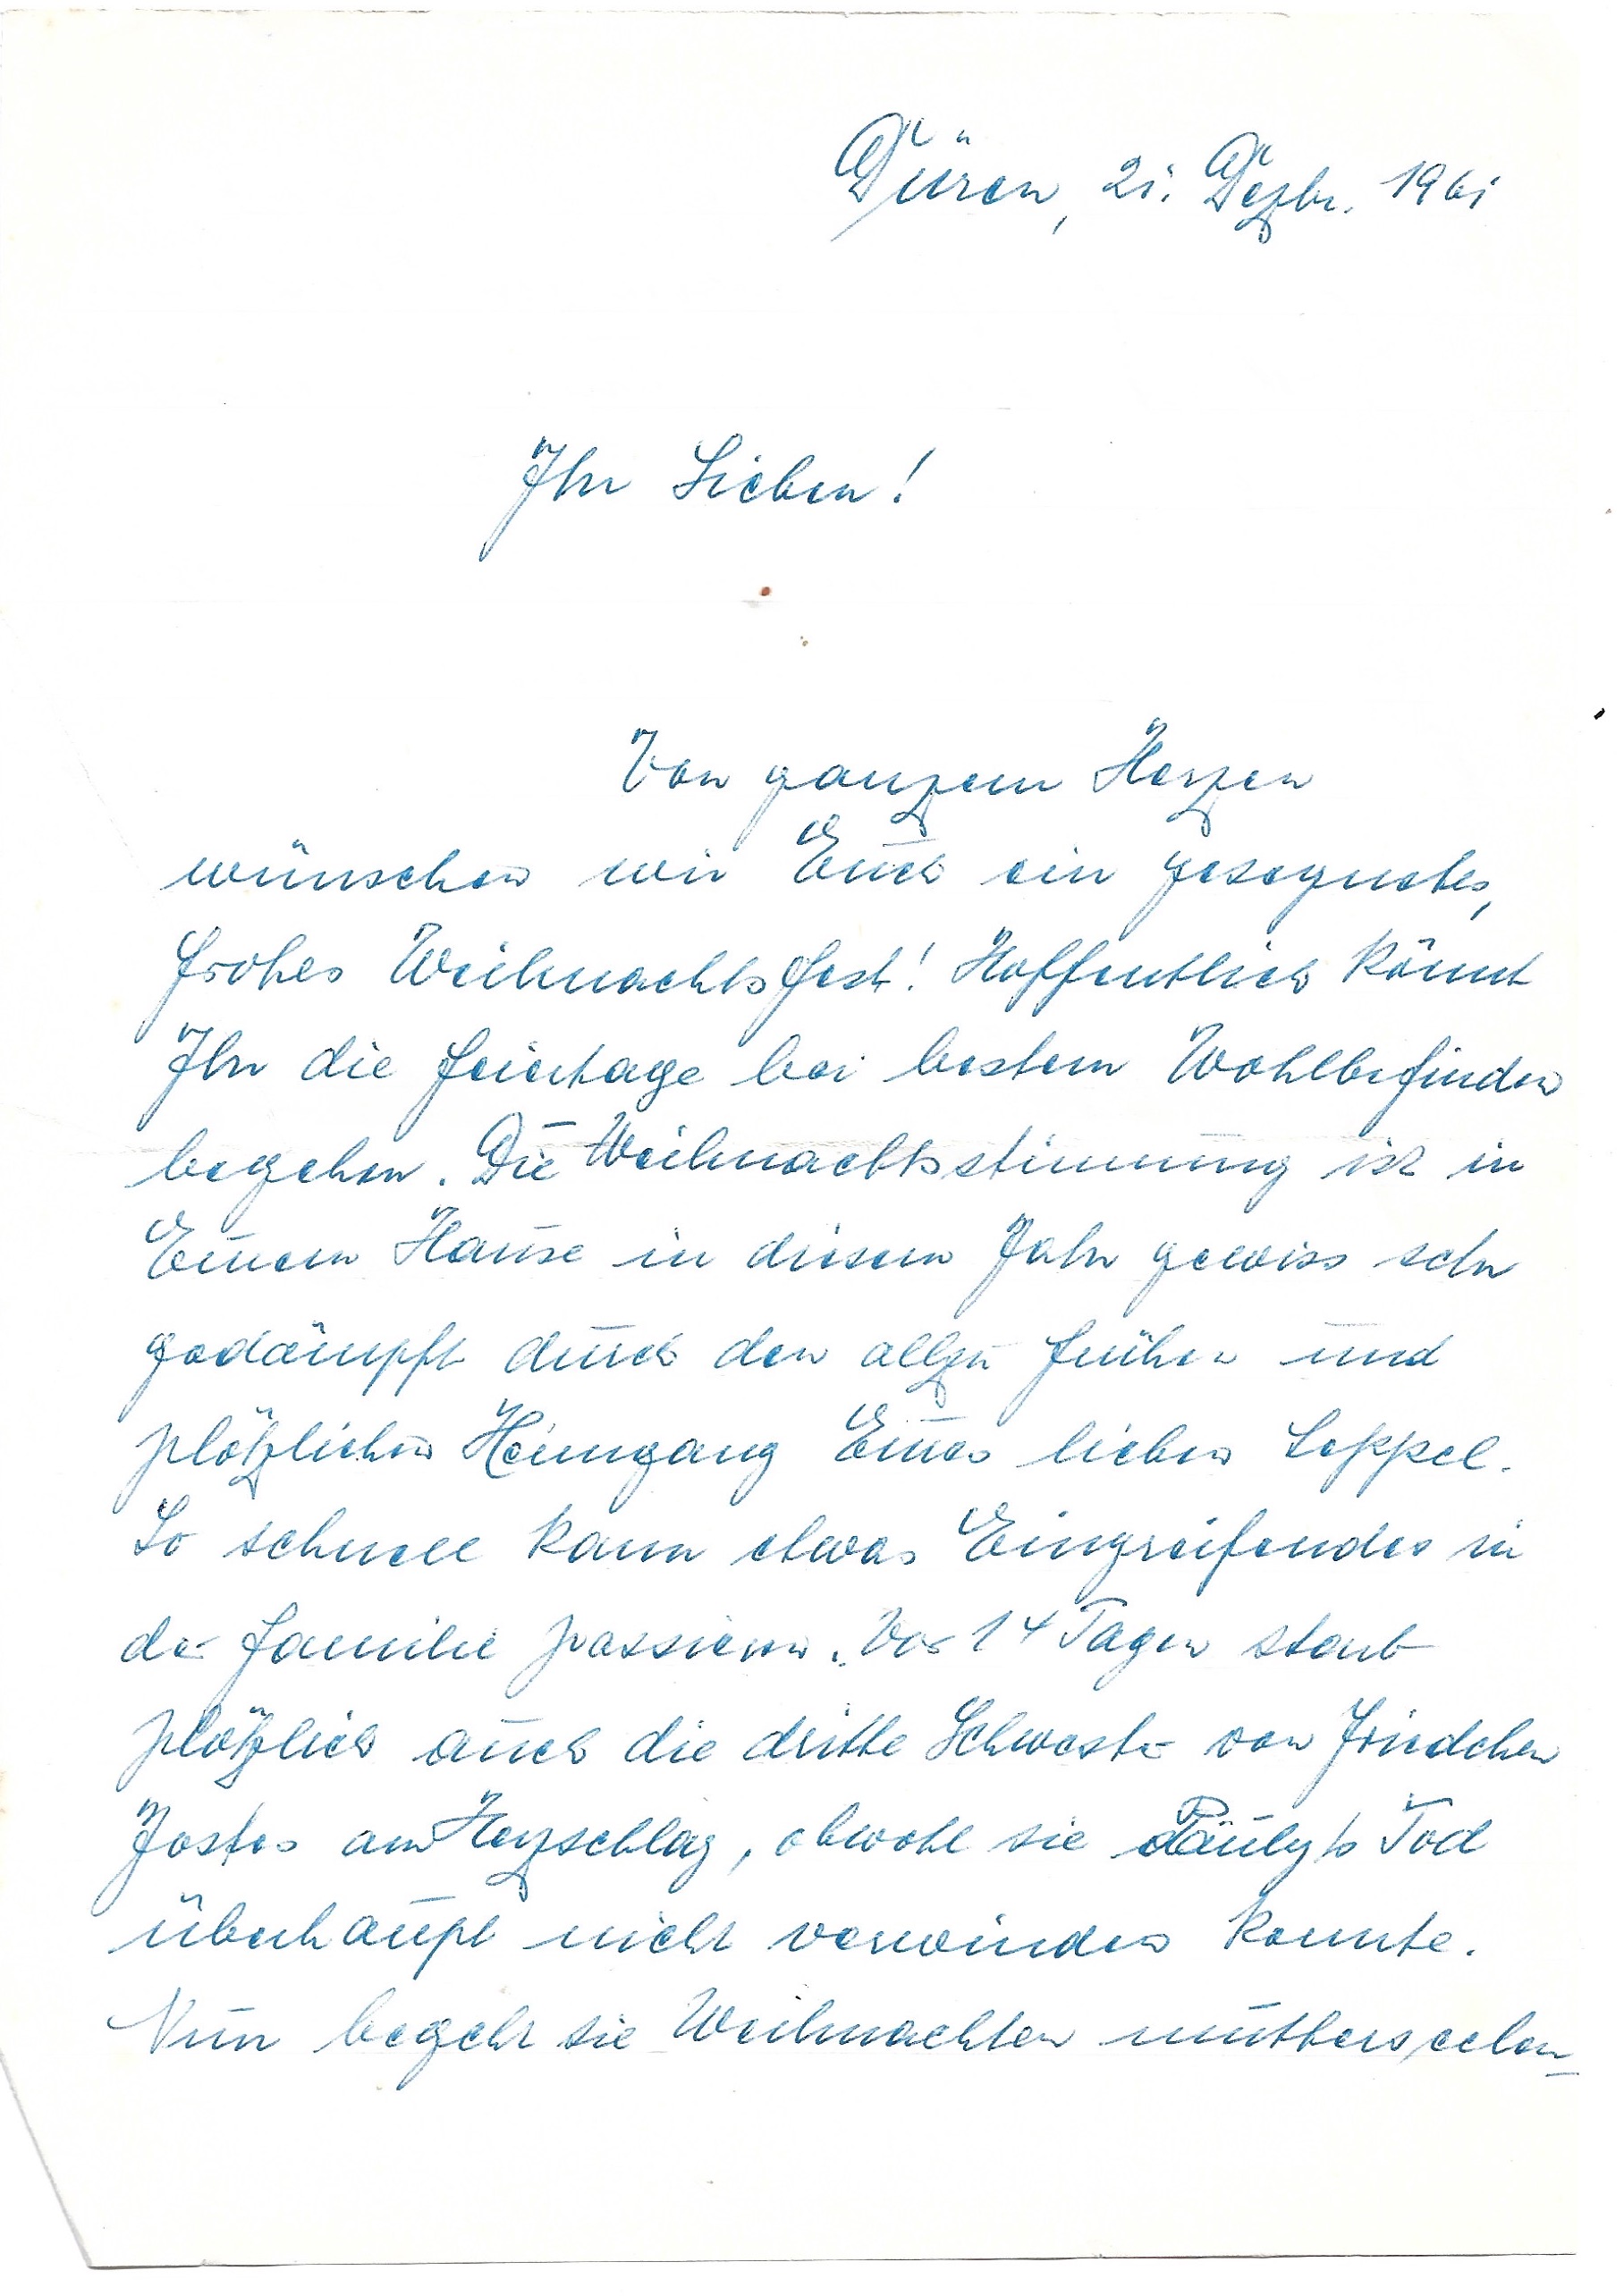 Düren, 21. Dezbr. 1961
Ihr Lieben!
Von ganzem Herzen
wünschen wir Euch ein gesegnetes,
frohes Weihnachtsfest! Hoffentlich könnt
Ihr die Feiertage bei bestem Wohlbefinden
begehen. Die Weihnachtsstimmung ist in
Eurem Hause in diesem Jahr gewiss sehr
gedämpft durch den allzu frühen und
plötzlichen Heimgang Eures lieben Seppel.
So schnell kann etwas Eingreifendes in
der Familie passieren. Vor 14 Tagen starb
plötzlich auch die dritte Schwester von Friedchen
Jostes am Herzschlag, obwohl sie Tod
überhaupt nicht verwinden konnte.
Nun begeht sie Weihnachten mutterseelen-